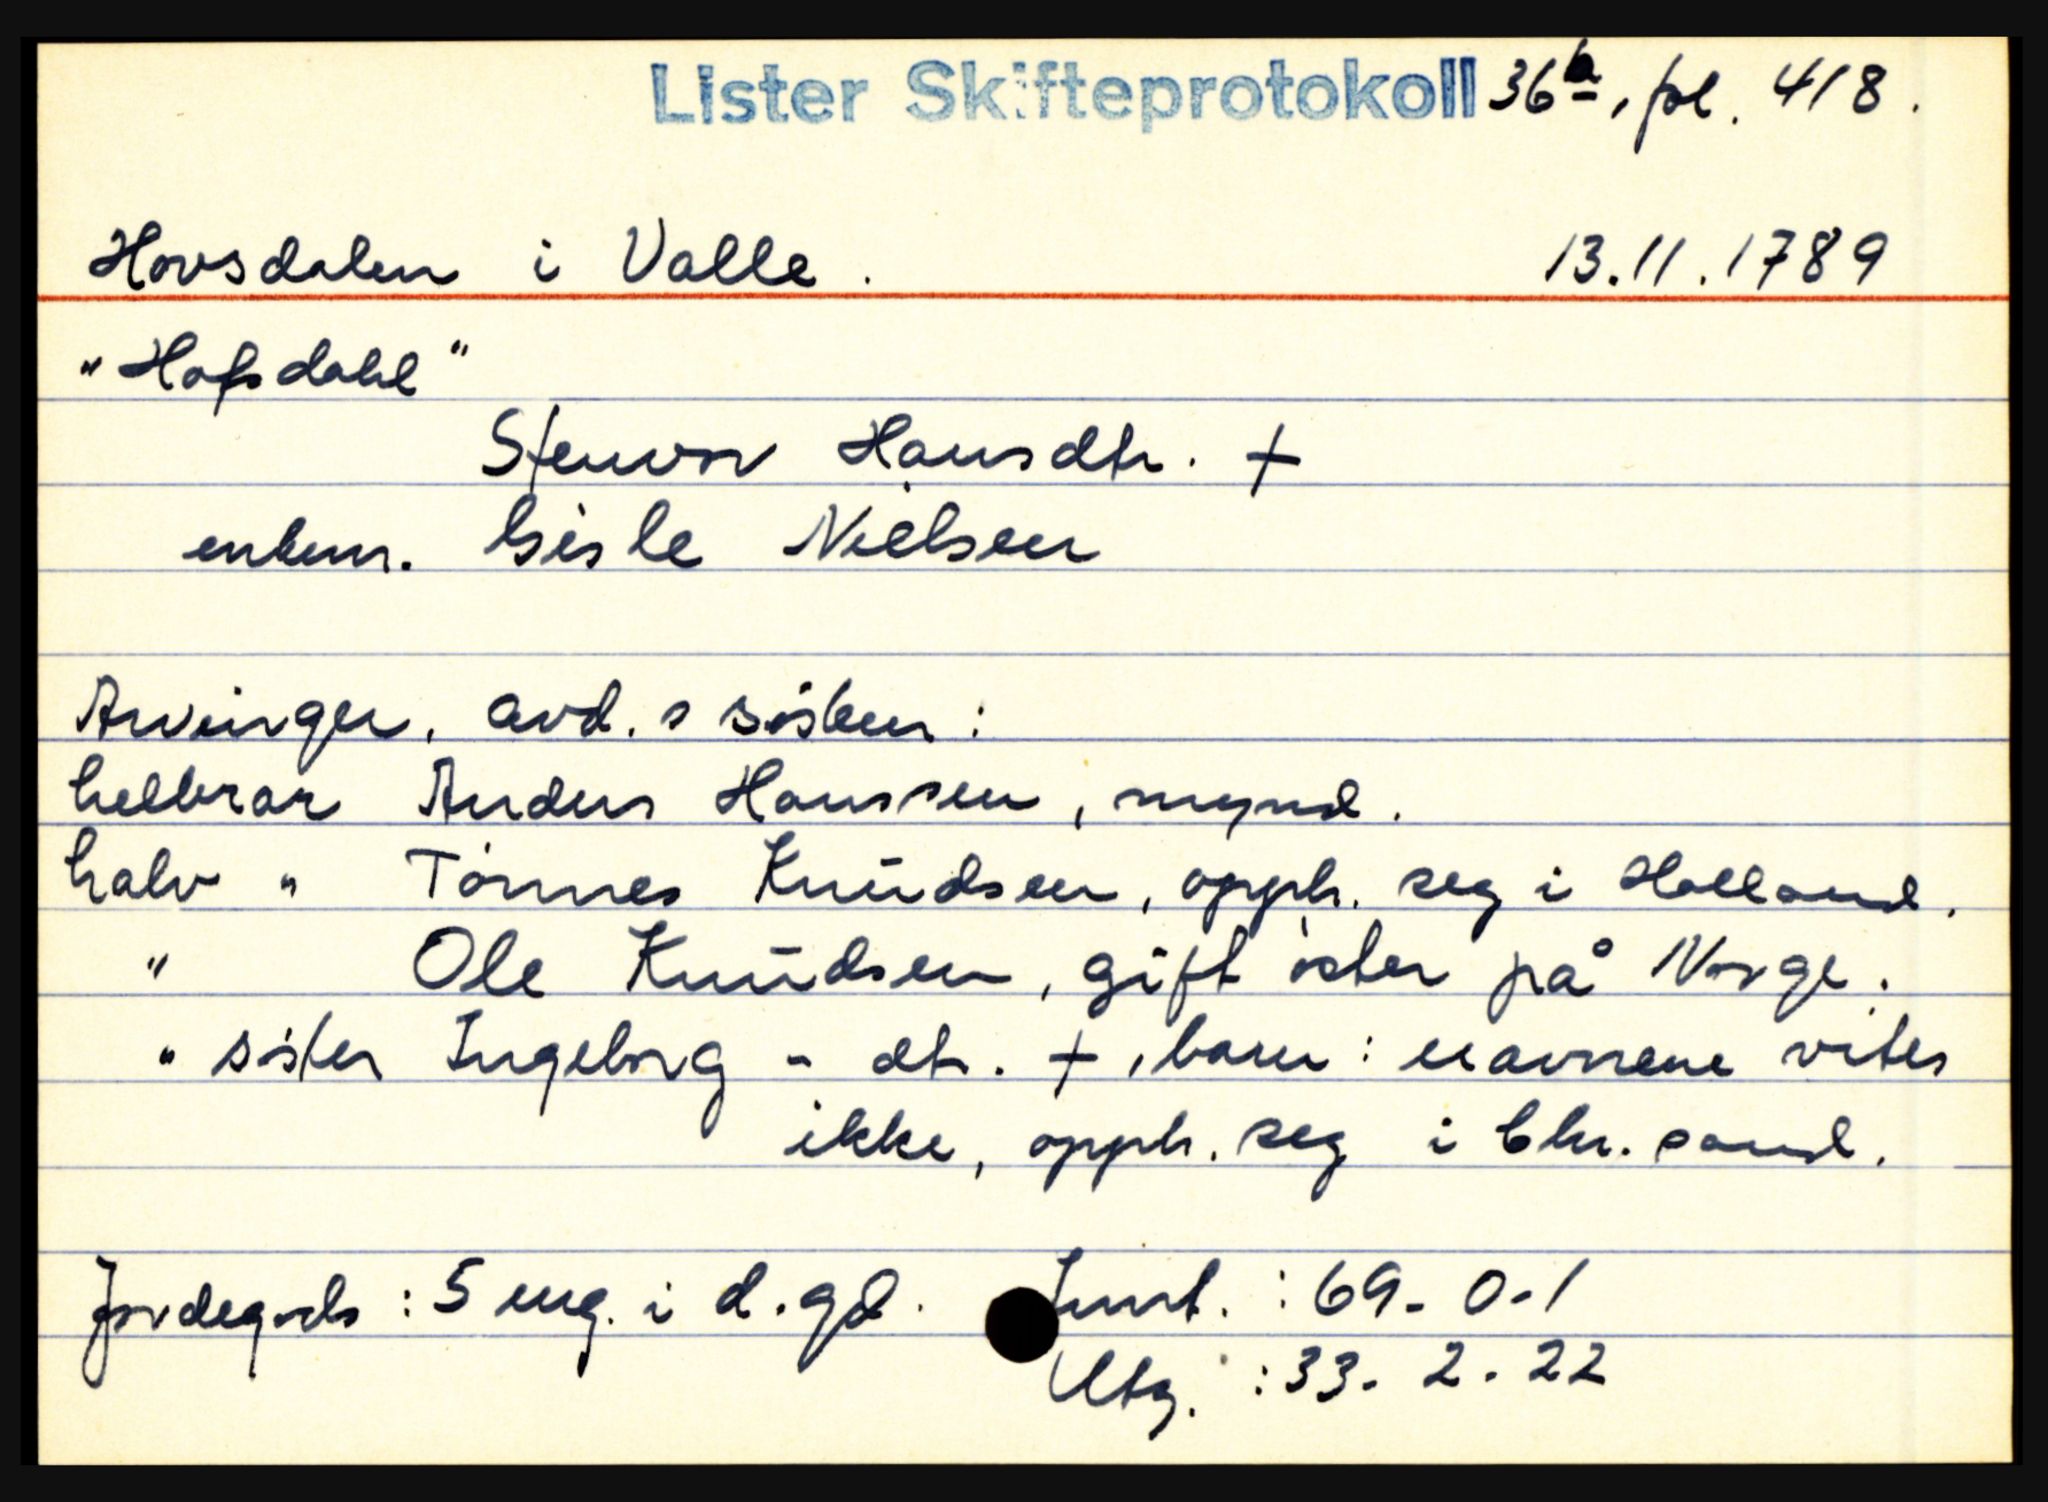 Lister Skifteprotokoll 36b, fol. 418.
Hovsdalen i Valle. 13.11.1789
"Hofsdahl"
Stenvor Hansdtr. +
enkem. Gisle Nielsen
Arvinger, avd.s søsken:
helbror Anders Hanssen, mynd.
halv " Tönnes Knudsen, opph. seg i Holland.
" Ole Knudsen, gift öster på Norge.
" søster Ingeborg - dtr. +, barn: navnene vites
ikke, opph. seg i Chr.sand.
Jordegods: 5 eng. i d. gd. Innt.: 69-0-1
Utg.: 33-2-22